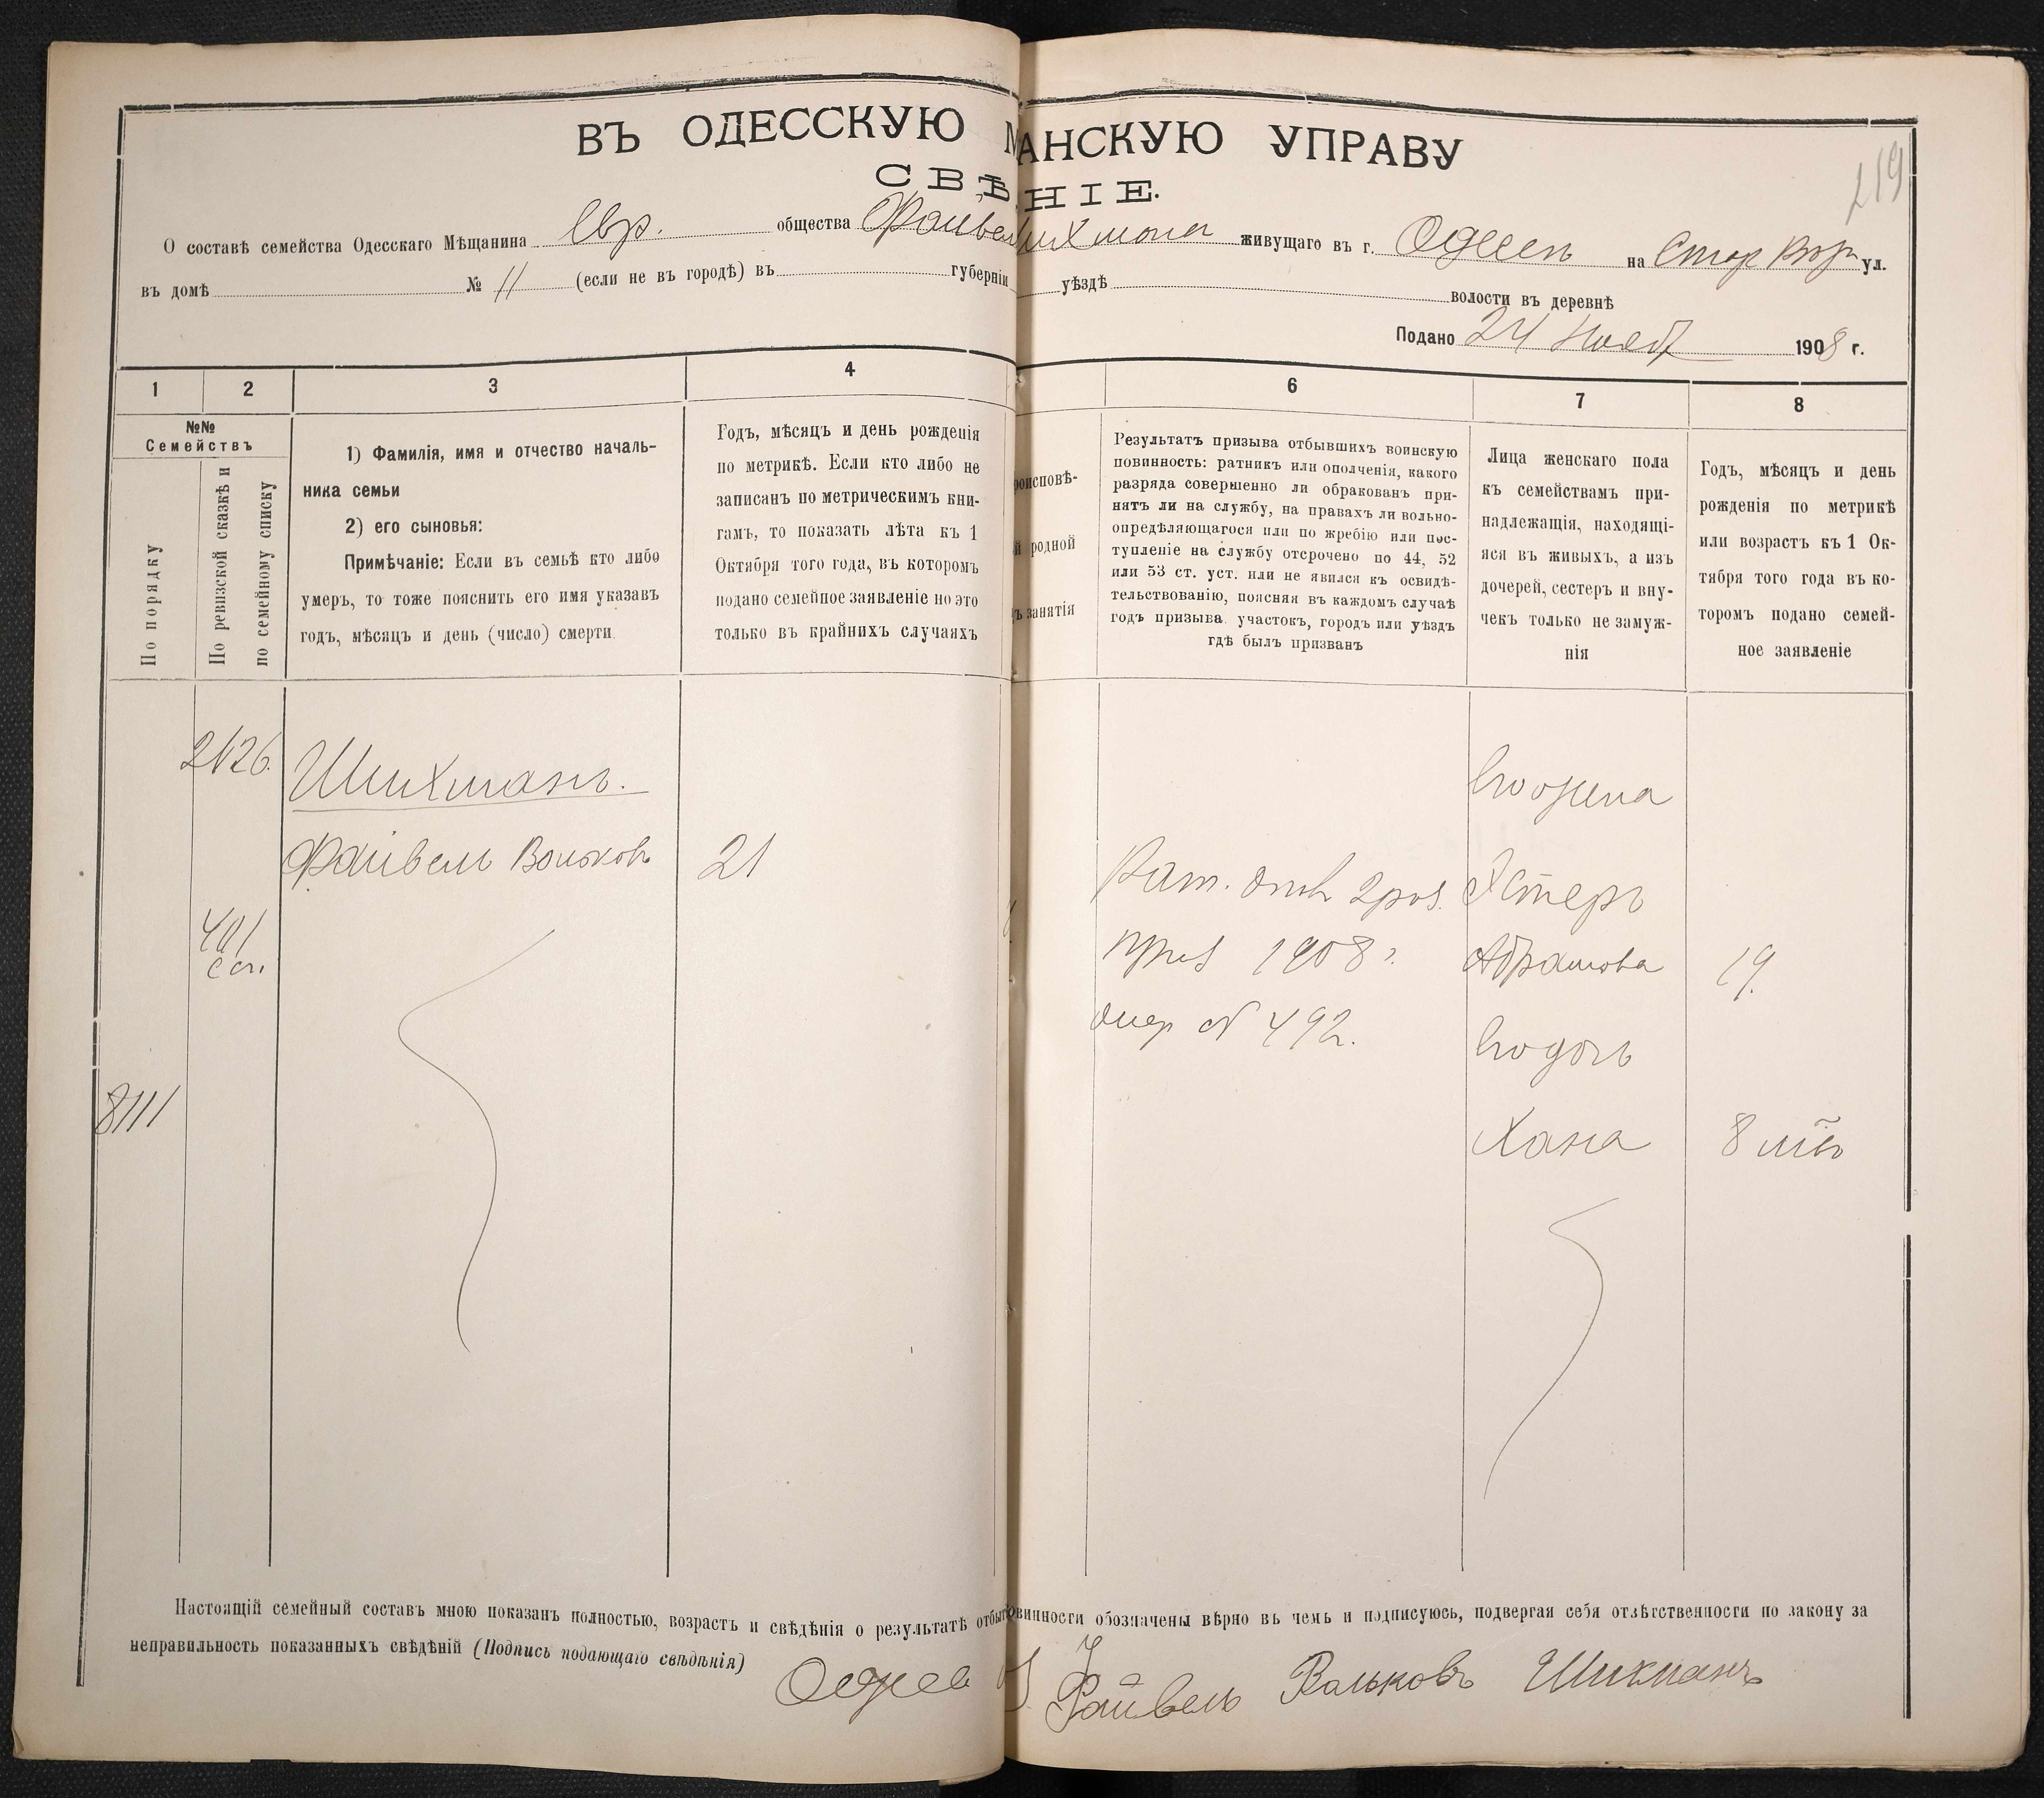 ВЪ ОДЕССКУЮ АНСКУЮ УПРАВУ
СВѢ НІЕ.
219
О составѣ семейства Одесскаго Мѣщанина Евр. общества Файвел Шихмана живущаго въ г. Одессѣ на ул.
въ домѣ № 11 (если не въ городѣ) въ губерніи уѣздѣ волости въ деревнѣ
Подано 24 Нояб 1908 г.
1 2 3 4 6 7 8
№№
Семействъ
По порядку
По ревизской сказкѣ и
по семейному списку
1) Фамилія, имя и отчество началь-
ника семьи
2) его сыновья:
Примѣчаніе: Если въ семьѣ кто либо
умеръ, то тоже пояснить его имя указавъ
годъ, мѣсяцъ и день (число) смерти
Годъ, мѣсяцъ и день рожденія
по метрикѣ. Если кто либо не
записанъ по метрическимъ кни-
гамъ, то показать лѣта къ 1
Октября того года, въ которомъ
подано семейное заявленіе но это
только въ крайнихъ случаяхъ
роисповѣ-
й родной
ъ занятія
Результатъ призыва отбывшихъ воинскую
повинность: ратникъ или ополченія, какого
разряда совершенно ли обракованъ при-
нятъ ли на службу, на правахъ ли вольно-
опредѣляющагося или по жребію или пос-
тупленіе на службу отсрочено по 44, 52
или 53 ст. уст. или не явился къ освидѣ-
тельствованію, поясняя въ каждомъ случаѣ
годъ призыва участокъ, городъ или уѣздъ
гдѣ былъ призванъ
Лица женскаго пола
къ семействамъ при-
надлежащія, находящі-
яся въ живыхъ, а изъ
дочерей, сестеръ и вну-
чекъ только не замуж-
нія
Годъ, мѣсяцъ и день
рожденія по метрикѣ
или возрастъ къ 1 Ок-
тября того года въ ко-
торомъ подано семей-
ное заявленіе
Шихманъ.
Его жена
Файвель Вольковъ 21
Рат. опол 2 раз. Эстеръ
приз 1908 г. Абрамова 19.
№ 492.
Его дочь
8111
Хана 8 мѣс
Настоящій семейный составъ мною показанъ полностью, возрастъ и свѣдѣнія о результатѣ отбыт овинности обозначены вѣрно въ чемъ и подписуюсь, подвергая себя отвѣтственности по закону за
неправильность показанныхъ свѣдѣній (Подпись подающаго свѣдѣнія)
Файвель Вольковъ Шихманъ